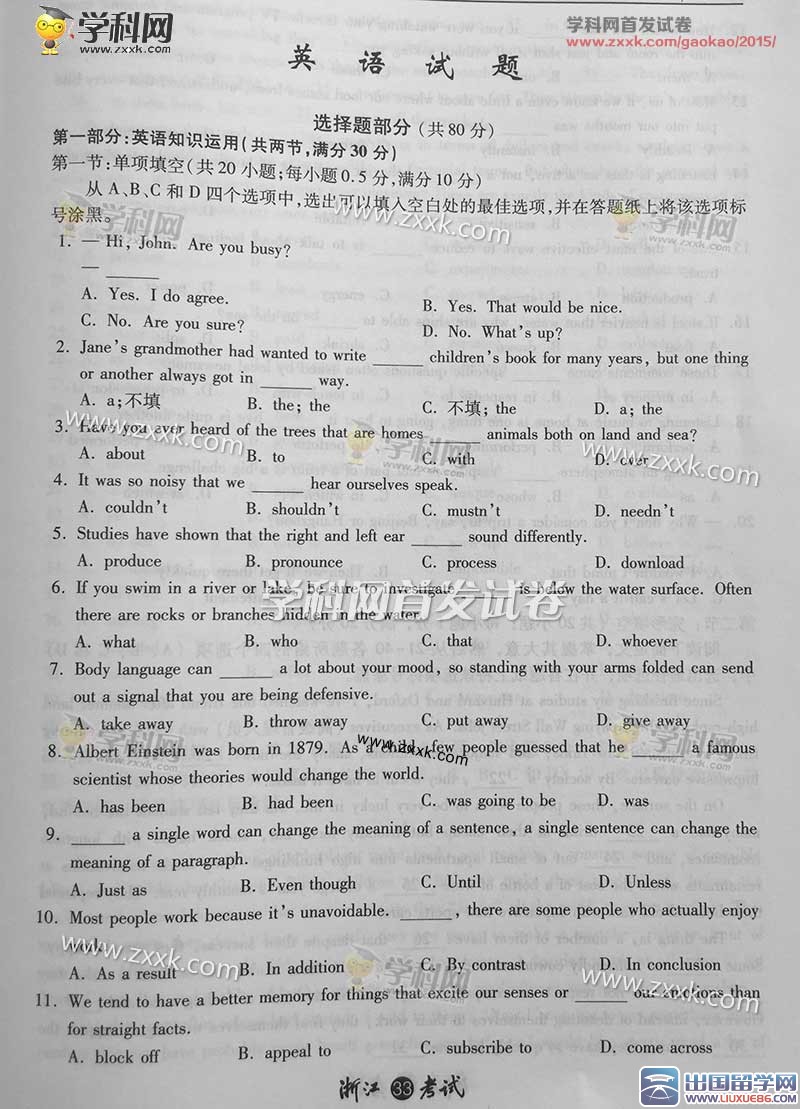 学科网
www.zxxk.com
学科网首发试卷
www.zxxk.com/gaokao/2015/
英 语 试 题
选择题部分 (共80分)
第一部分:英语知识运用(共两节,满分30分)
第一节:单项填空(共20小题;每小题0.5分,满分10分)
从A、B、C和D四个选项中,选出可以填入空白处的最佳选项,并在答题纸上将该选项标
号涂黑。
1. — Hi, John. Are you busy?
— ______
A. Yes. I do agree. B. Yes. That would be nice.
C. No. Are you sure? D. No. What's up?
2. Jane's grandmother had wanted to write ______ children's book for many years, but one thing
or another always got in ______ way.
A. a;不填 B. the; the C. 不填; the D. a; the
3. Have you ever heard of the trees that are homes ______ animals both on land and sea?
A. about B. to C. with D. over
4. It was so noisy that we ______ hear ourselves speak.
A. couldn't B. shouldn't C. mustn't D. needn't
5. Studies have shown that the right and left ear ______ sound differently.
A. produce B. pronounce C. process D. download
6. If you swim in a river or lake, be sure to investigate ______ is below the water surface. Often
there are rocks or branches hidden in the water.
A. what B. who C. that D. whoever
7. Body language can ______ a lot about your mood, so standing with your arms folded can send
out a signal that you are being defensive.
A. take away B. throw away C. put away D. give away
8. Albert Einstein was born in 1879. As a child, few people guessed that he ______ a famous
scientist whose theories would change the world.
A. has been B. had been C. was going to be D. was
9. ______ a single word can change the meaning of a sentence, a single sentence can change the
meaning of a paragraph.
A. Just as B. Even though C. Until D. Unless
10. Most people work because it's unavoidable. ______, there are some people who actually enjoy
work.
A. As a result B. In addition C. By contrast D. In conclusion
11. We tend to have a better memory for things that excite our senses or ______ our emotions than
for straight facts.
A. block off B. appeal to C. subscribe to D. come across
浙江 33 考试
出国留学网
www.liuxue86.com